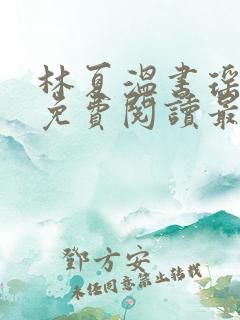 林夏溫書瑤
免費閱讀最
鄧方安
未經同意禁止轉載